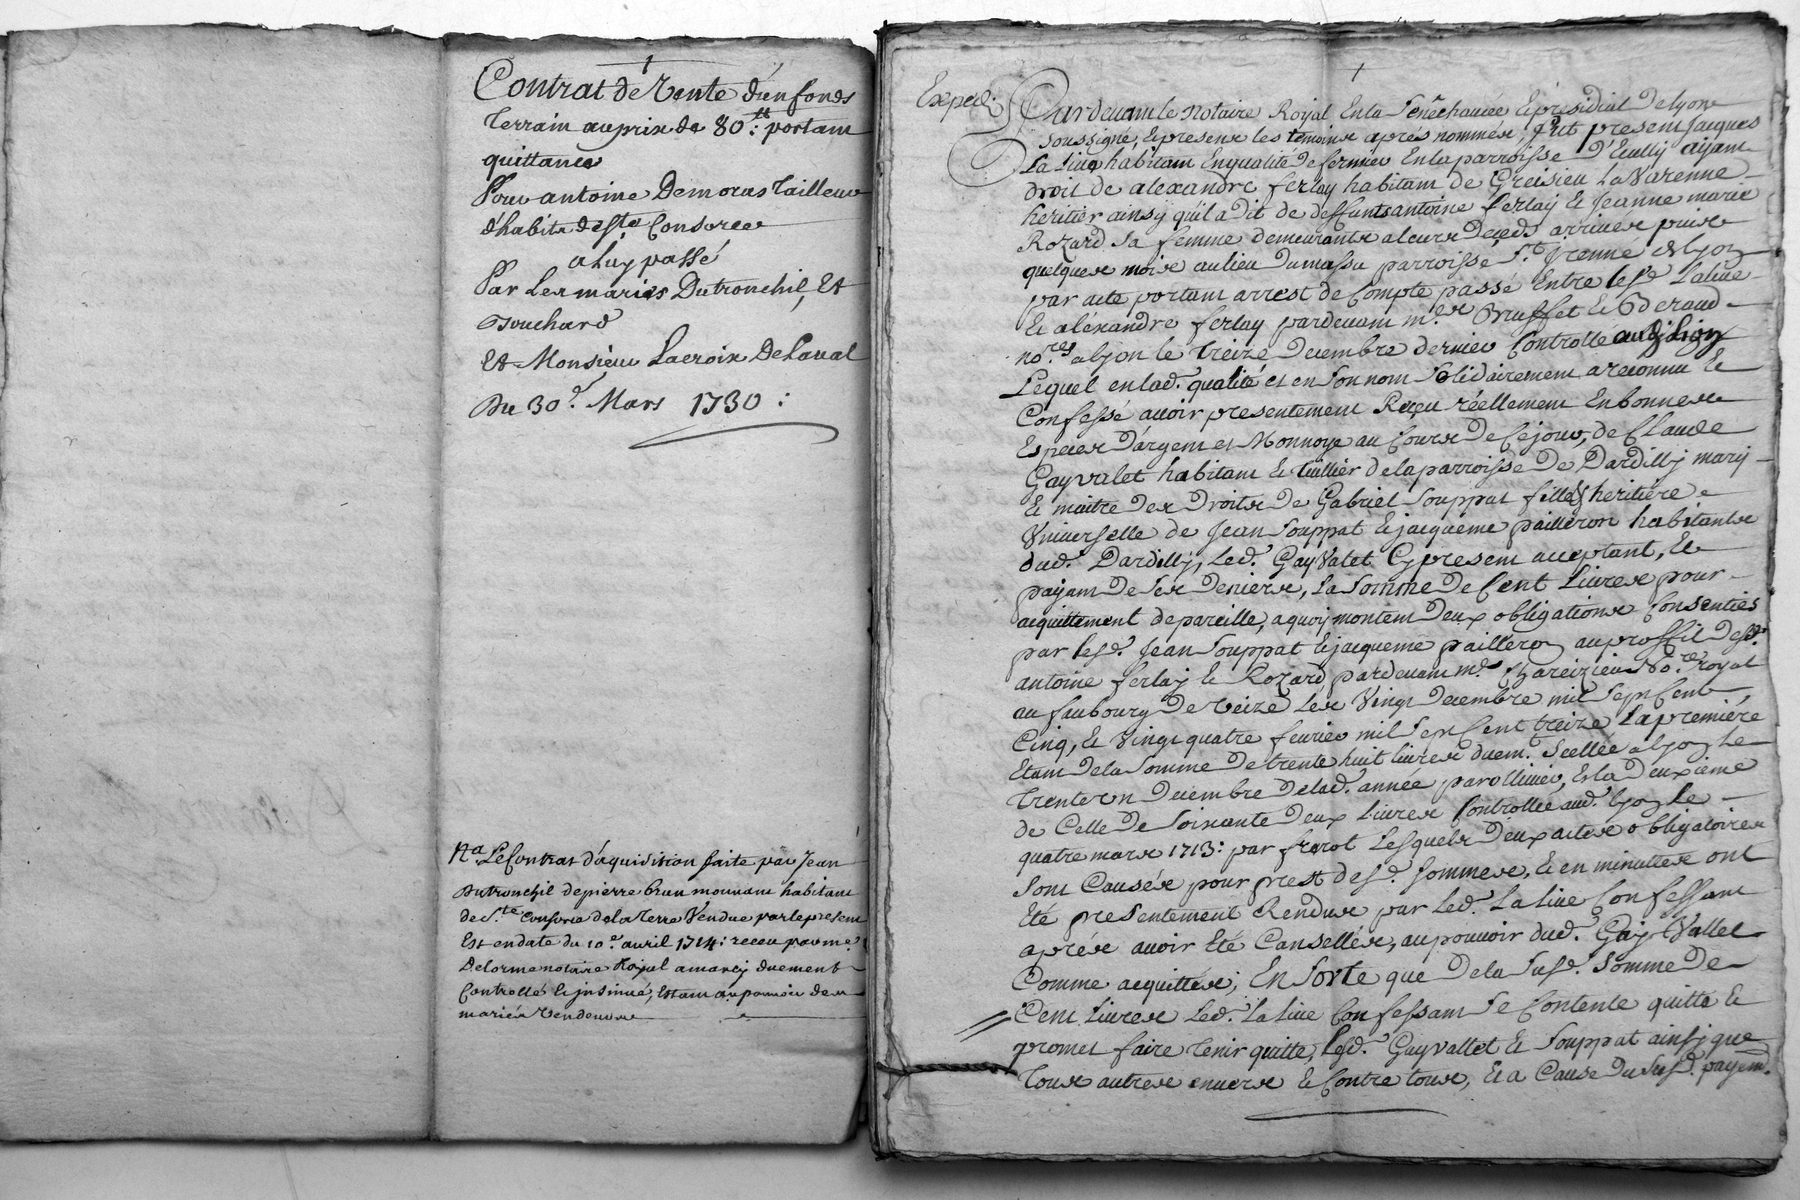 1
Contrat de Vente d'un fonds
Terrain au prix de 80:tt portant
quittance
Pour antoine Demoras Tailleur
d'habits de Ste Consorce
a luy passé
Par Les mariés Dutronchil, Et
Bouchard
Et Monsieur Lacroix De Laval
Du 30.e Mars 1730:
Na. Le Contrat d'aquisition faite par Jean
Dutronchil de pierre brun mouvant habitant
de S.te Consorce de la Terre Vendue par le present
Est en date du 10.e avril 1714: receu par me.
Delorme notaire Royal a marcy duement
Controllé & jnsinué, Estant au pouvoir des
mariés Vendeurs
1
Exped:
Pardevant le Notaire Royal En la Senechaucée & presidial de lyon
soussigné, & presents les temoins apres nommés, fut present Jacques
La Live habitant En qualité de fermier En la parroisse d'Ecully ayant
droit de alexandre ferlay habitant de Greisieu La Varenne
heritier ainsy qu'il a dit de deffunts antoine ferlay & Jeanne marie
Rozard sa femme demeurants a leurs deceds arrivés puis
quelques mois au lieu du massu parroisse St. Irenné de lyon
par acte portant arrest de Compte passé Entre lesd. Lalive
& aléxandre ferlay pardevant m.es Bruffet & Deraud
no.res a lyon le treize Decembre dernier Controllé audj. lion
Lequel en lad. qualité et en son nom solidairement a reconnu &
Confessé avoir presentement Reçu réellement En bonnes
Especes D'argent et Monnoye au Cours de Ce jour, de Claude
Gayvalet habitant & tuillier de la parroisse de Dardilly mary
& maitre des Droits de Gabriel Souppat fille & heritiere
Universelle de Jean Souppat & jacqueme pailleron habitants
dud. Dardilly, Led. Gayvalet Cy present acceptant, &
payant de Ses Deniers, La Somme de Cent Livres pour
acquittement de pareille, a quoy montent Deux obligations Consenties
par lesd. Jean Souppat & jacqueme pailleron au proffit desd.
antoine ferlay & Rozard pardevant m.e Chareizieu No.re royal
au faubourg de Veize les Vingt Decembre mil Sept Cent
Cinq, & Vingt quatre fevrier mil Sept Cent treize La premiére
Etant De la Somme de trente huit livres duem.t Scellée a lyon Le
Trente un Decembre de lad. année par ollivier, & la Deuxieme
de Celle De Soixante Deux Livres Controllée aud. Lyon Le
quatre mars 1713: par frerot Lesquels Deux actes obligatoires
Sont Causés pour prest desd. Sommes, & en minuttes ont
Eté presentement Rendus par Led. La Live Confessant
aprés avoir Eté Cansellés, au pouvoir dud. Gay Vallet
Comme acquittés; En Sorte que De la Susd. Somme De
Cent Livres Led. La Live Confessant Se Contente quitte &
promet faire tenir quitte, Lesd. Gayvallet & Souppat ainsy que
Tous autres envers & Contre tous, & a Cause du Susd. payem.t